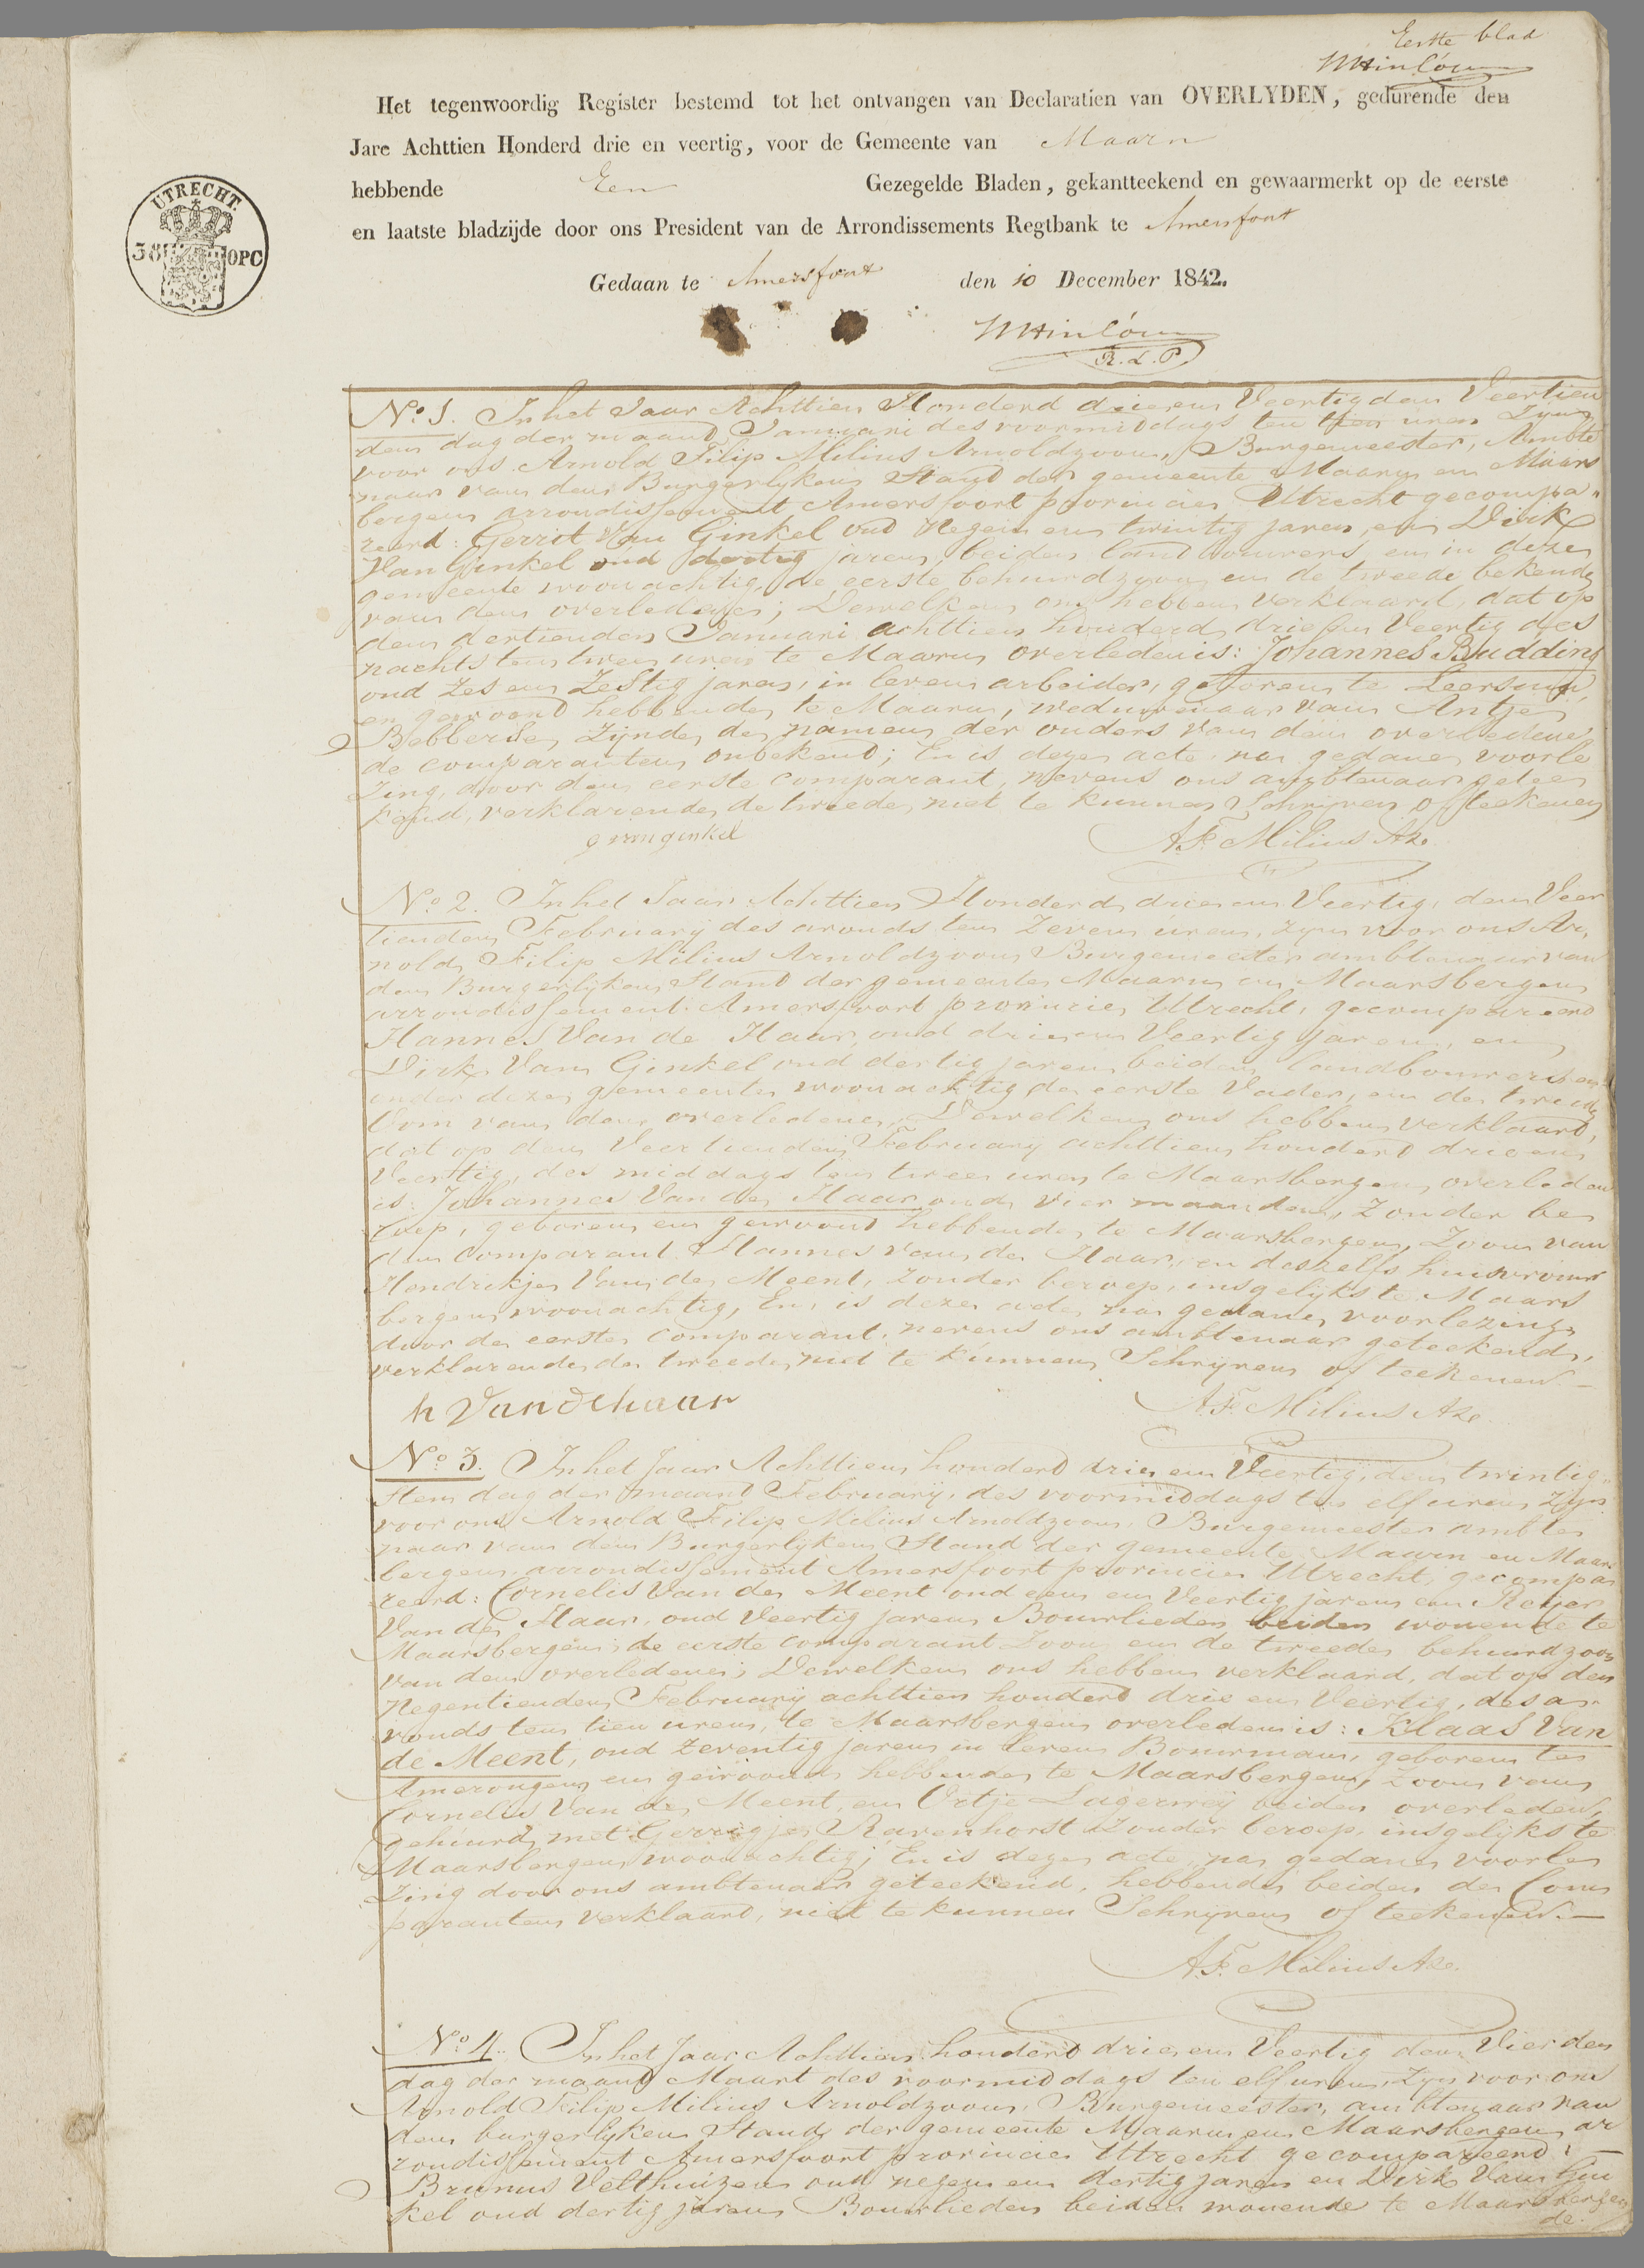 Eerste blad
Het tegenwoordig Register bestemd tot het ontvangen van Declaratien van OVERLYDEN, gedurende den
Jare Achttien Honderd drie en veertig, voor de Gemeente van Maarn
hebbende Een Gezegelde Bladen, gekantteekend en gewaarmerkt op de eerste
en laatste bladzijde door ons President van de Arrondissements Regtbank te Amersfoort
UTRECHT.
38 OPC
Gedaan te Amersfoort den 10 December 1842.
R. L. P.
No. 1. In het Jaar Achttien Honderd drie en Veertig den Veertien
den dag der maand Januari des voormiddags ten uren Zyn
voor ons Arnold Filip Milius Arnoldzoon, Burgemeester, Ambte
naar van den Burgerlyken Stand der gemeente Maarn en Maars
bergen arrondissement Amersfoort provincie Utrecht gecompa-
reerd: Gerrit Van Ginkel oud Negen en twintig jaren, en Dirk
Van Ginkel oud dertig jaren, beiden landbouwers, en in deze
gemeente woonachtig, de eerste behuwdzoon en de tweede bekende
van den overledenen; Dewelken ons hebben verklaard, dat op
den dertienden Januari achttien honderd drie en Veertig des
nachts ten twee uren te Maarn overleden is: Johannes Budding
oud Zes en Zestig jaren, in leven arbeider, geboren te Leersum,
en gewoond hebbende te Maarn, weduwenaar van Antje
Bebberse, Zynde de namen der ouders van den overledene
de comparanten onbekend; En is deze acte na gedane voorle
zing, door den eerste comparant, nevens ons ambtenaar geteek
kend, verklarende de tweede, niet te kunnen Schrijven of teekenen
g van ginkel A.F. Milius Az.
No. 2. In het Jaar Achttien Honderd drie en Veertig, den Veer
tienden February des avonds ten Zeven uren, zyn voor ons Ar,
nold, Filip Milius Arnoldzoon Burgemeester ambtenaar van
den Burgerlijken Stand der gemeente Maarn en Maarsbergen
arrondissement Amersfoort provincie Utrecht, gecompareerd
Hannes Van de Haar, oud drie en Veertig jaren, en
Dirk Van Ginkel oud dertig jaren beiden landbouwers en
onder deze gemeente woonachtig de eerste Vader, en de tweede
Oom van den overledene, Dewelken ons hebben verklaard,
dat op den Veertienden February achttien honderd drie en
Veertig, des middags ten twee uren te Maarsbergen, overleden
is: Johannes Van de Haar oud vier maanden, Zonder be
roep, geboren en gewoond hebbende te Maarsbergen, Zoon van
den comparant Hannes van de Haar, en deszelfs huisvrouw
Hendrikje Van de Meent, zonder beroep, insgelijks te Maars
bergen woonachtig, En is deze acte na gedane voorlezing
door de eerste comparant, nevens ons ambtenaar geteekend,
verklarende de tweede, niet te kunnen Schrijven of teekenen.
h Van de haar A.F. Milius Az.
No. 3. In het Jaar Achttien honderd drie en Veertig, den twintig-
sten dag der maand February, des voormiddags ten elf uren Zyn
voor ons Arnold Filip Milius Arnoldzoon, Burgemeester ambte
naar van den Burgerlyken Stand der gemeente Maarn en Maars
bergen arrondissement Amersfoort provincie Utrecht, gecompa
reerd: Cornelis Van de Meent oud een en Veertig jaren en Reijer
Van de Haar, oud Veertig jaren Bouwlieden beiden wonende te
Maarsbergen; de eerste comparant Zoon en de tweede behuwdzoon
van den overledene; Dewelken ons hebben verklaard, dat op den
Negentienden February achttien honderd drie en Veertig, des a-
vonds ten tien uren, te Maarsbergen overleden is: Klaas Van
de Meent, oud Zeventig jaren in leven Bouwman, geboren te
Amerongen en gewoond hebbende te Maarsbergen, Zoon van
Cornelis Van de Meent, en Ortje Lagerweij beiden overleden,
gehuwd met Gerrigje Ravenhorst Zonder beroep, insgelijks te
Maarsbergen woonachtig; En is deze acte, na gedane voorle
zing door ons ambtenaar geteekend, hebbende beiden de Com
paranten verklaard, niet te kunnen Schrijven of teekenen.
A.F. Milius Az.
No. 4. In het Jaar Achttien honderd drie en Veertig den Vierden
dag der maand Maart des voormiddags ten elf uren, Zyn voor ons
Arnold Filip Milius Arnoldzoon, Burgemeester, ambtenaar van
den burgerlyken Stand der gemeente Maarn en Maarsbergen ar
rondissement Amersfoort provincie Utrecht gecompareerd:
Brunus Velthuizen oud negen en dertig jaren en Dirk Van Gin
kel oud dertig jaren Bouwlieden beiden wonende te Maarsbergen
de